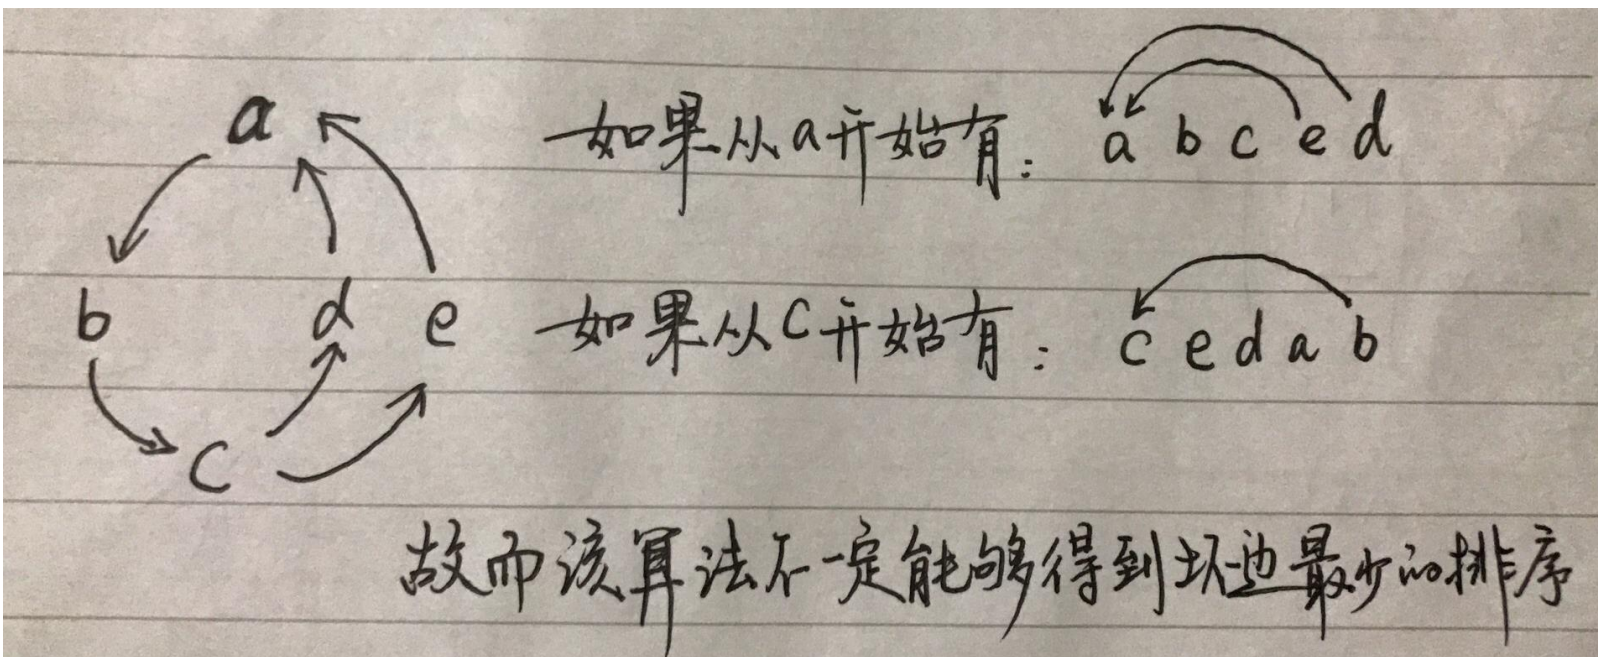 a
如果从a开始有: a b c e d
b d e
如果从c开始有: c e d a b
c
故而该算法不一定能够得到坏边最少的排序